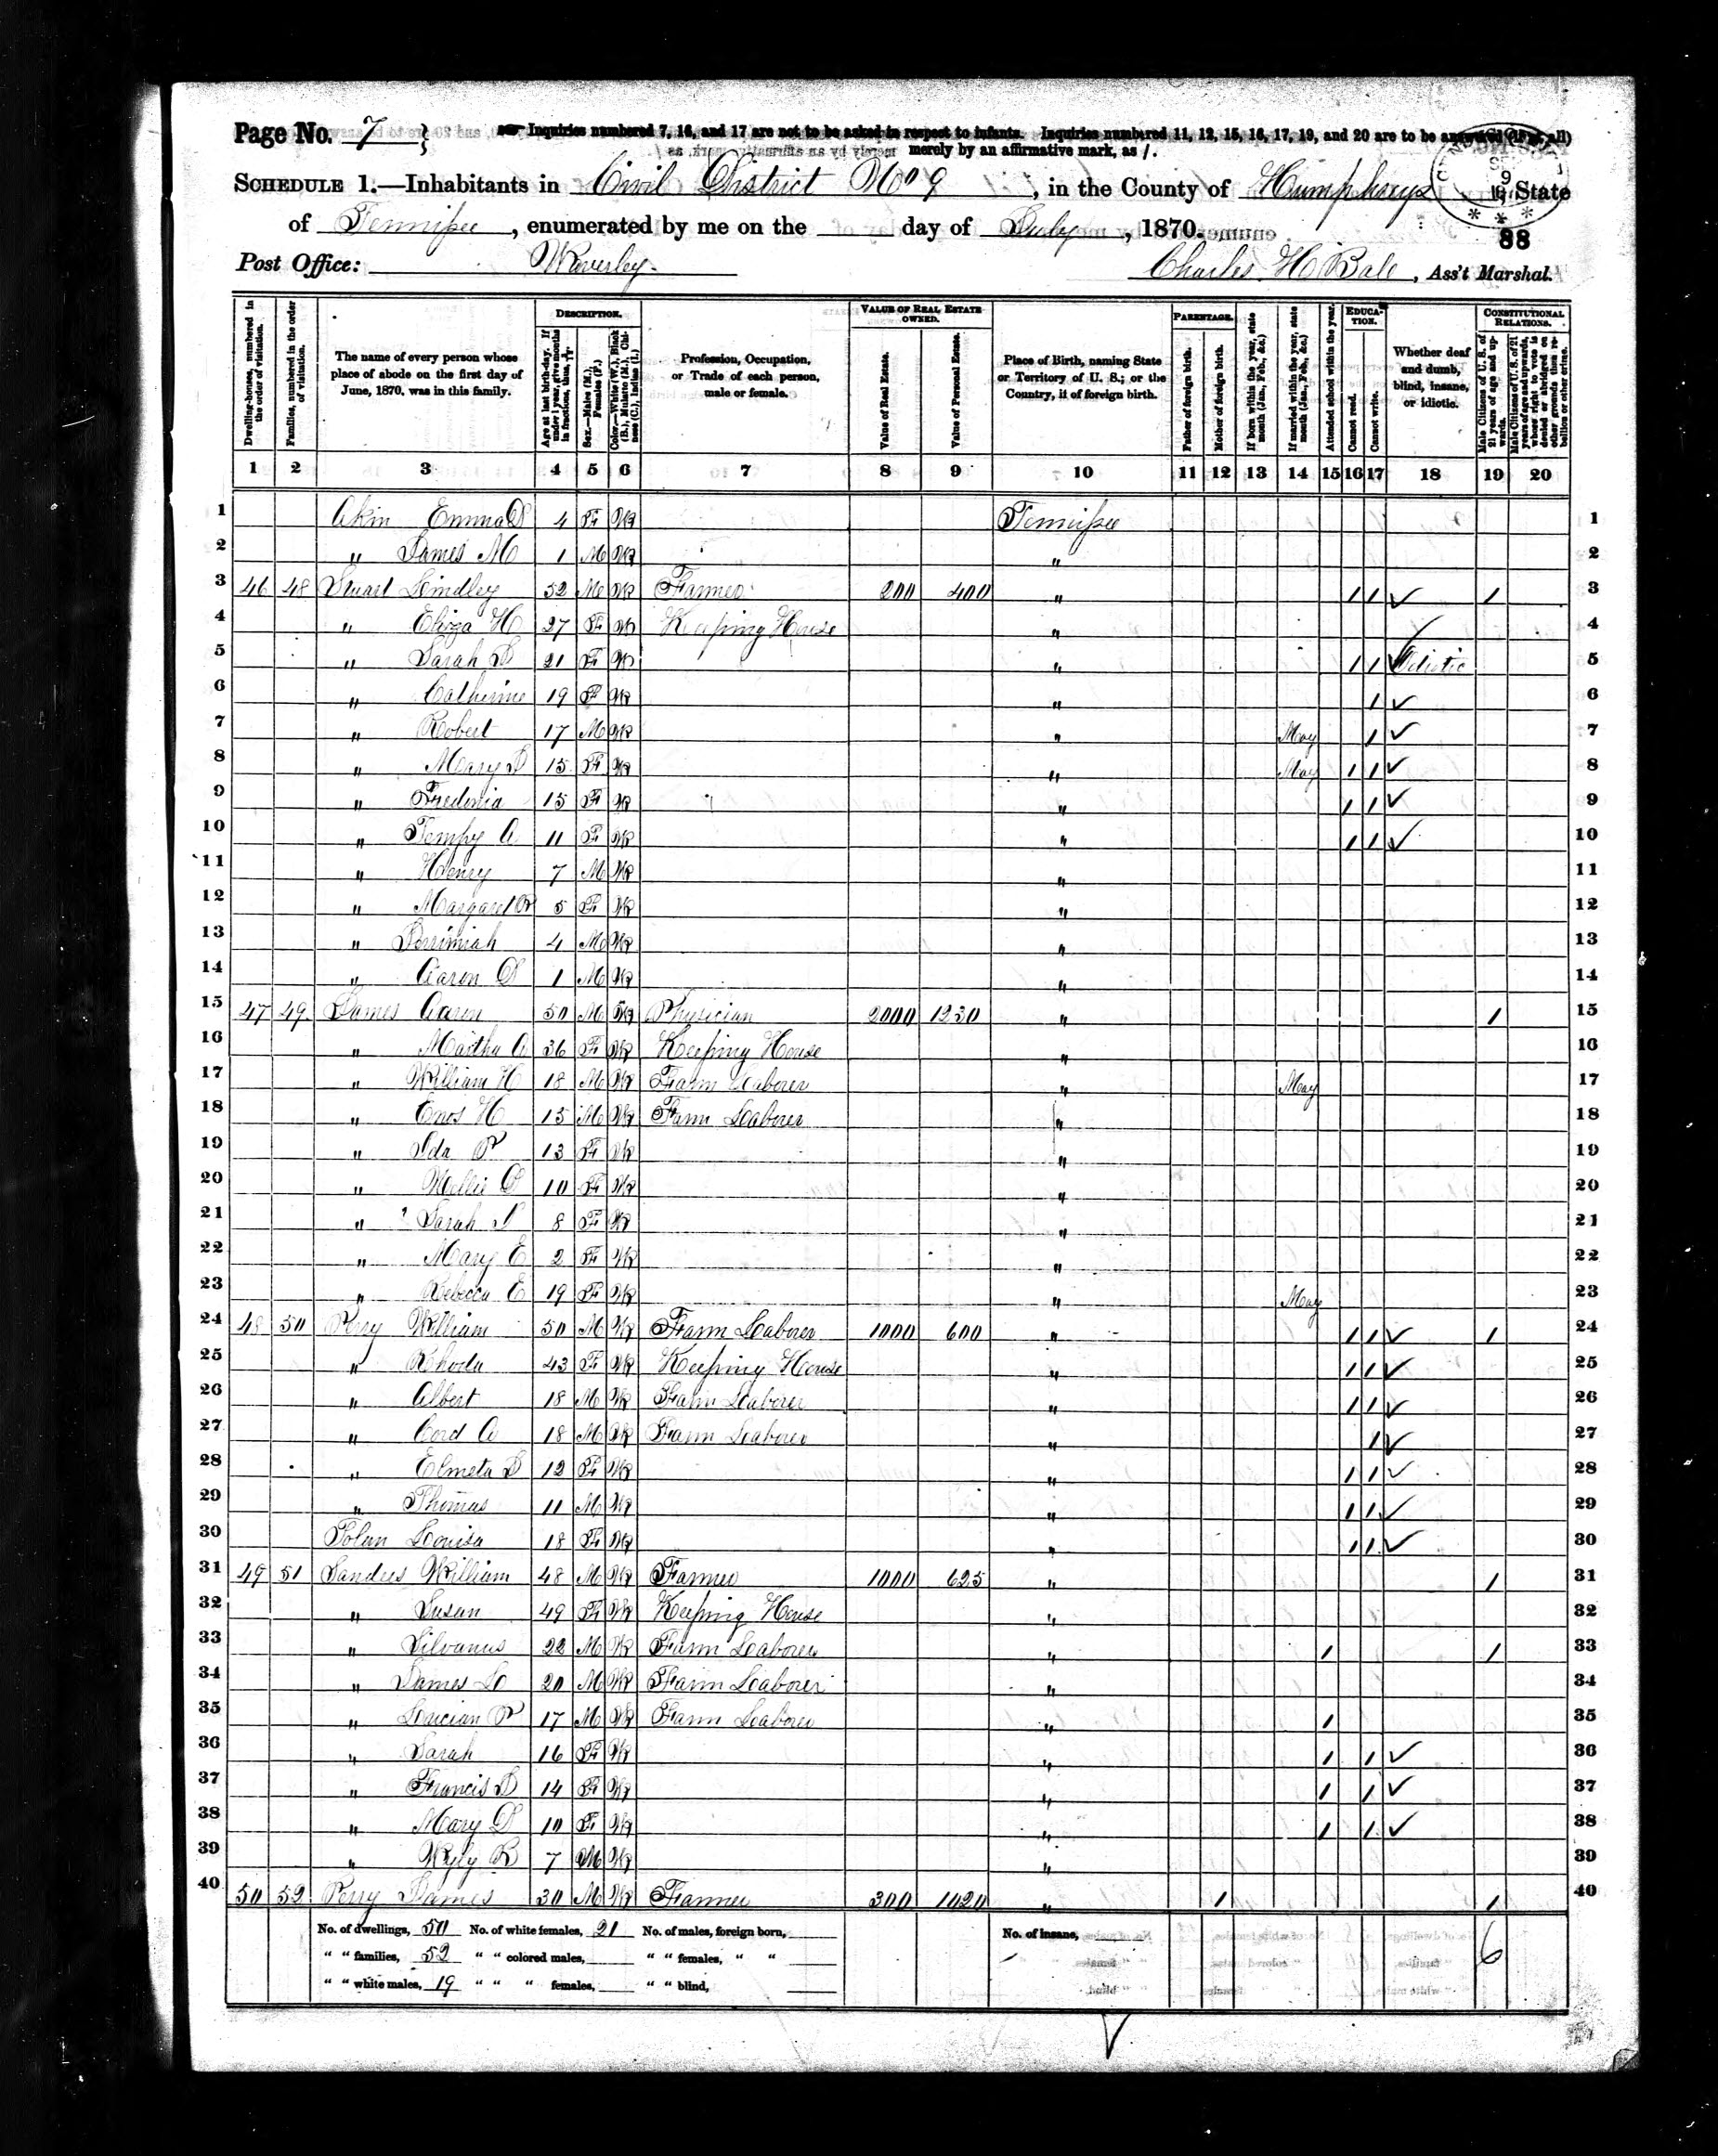 Page No. 7 } Inquiries numbered 7, 16, and 17 are not to be asked in respect to infants. Inquiries numbered 11, 12, 15, 16, 17, 19, and 20 are to be answered (if at all)
merely by an affirmative mark, as /.
SCHEDULE 1.—Inhabitants in Civil District No 9, in the County of Humphreys, State
of Tennessee, enumerated by me on the day of July, 1870.
88
Post Office: Waverley. Charles H Bale, Ass't Marshal.
Dwelling-houses, numbered in the order of visitation. Families, numbered in the order of visitation. The name of every person whose place of abode on the first day of June, 1870, was in this family. DESCRIPTION. Age at last birth-day. If under 1 year, give months in fractions, thus, Sex.—Males (M.), Females (F.) Color.—White (W.), Black (B.), Mulatto (M.), Chinese (C.), Indian (I.) Profession, Occupation, or Trade of each person, male or female. VALUE OF REAL ESTATE OWNED. Value of Real Estate. Value of Personal Estate. Place of Birth, naming State or Territory of U. S.; or the Country, if of foreign birth. PARENTAGE. Father of foreign birth. Mother of foreign birth. If born within the year, state month (Jan., Feb., &c.) If married within the year, state month (Jan., Feb., &c.) Attended school within the year. EDUCATION. Cannot read. Cannot write. Whether deaf and dumb, blind, insane, or idiotic. CONSTITUTIONAL RELATIONS. Male Citizens of U. S. of 21 years of age and upwards. Male Citizens of U. S. of 21 years of age and upwards, whose right to vote is denied or abridged on other grounds than rebellion or other crime.
1 2 3 4 5 6 7 8 9 10 11 12 13 14 15 16 17 18 19 20
1 Akin Emma D 4 F W Tennessee 1
2 " James M 1 M W " 2
3 46 48 Stuart Lindley 52 M W Farmer 200 400 " / / ✓ / 3
4 " Eliza H 27 F W Keeping House " 4
5 " Sarah J 21 F W " / / ✓ Idiotic 5
6 " Catherine 19 F W " / ✓ 6
7 " Robert 17 M W " May / ✓ 7
8 " Mary J 15 F W " May / / ✓ 8
9 " Fredonia 15 F W " / / ✓ 9
10 " Tempy A 11 F W " / / ✓ 10
11 " Henry 7 M W " 11
12 " Margaret R 5 F W " 12
13 " Jerimiah 4 M W " 13
14 " Aaron D 1 M W " 14
15 47 49 James Aaron 50 M W Physician 2000 1230 " / 15
16 " Martha A 36 F W Keeping House " 16
17 " William H 18 M W Farm Laborer " May 17
18 " Enos H 15 M W Farm Laborer " 18
19 " Ida P 13 F W " 19
20 " Mellie D 10 F W " 20
21 " Sarah J 8 F W " 21
22 " Mary E 2 F W " 22
23 " Rebecca E 19 F W " May 23
24 48 50 Perry William 50 M W Farm Laborer 1000 600 " / / ✓ / 24
25 " Rhoda 43 F W Keeping House " / / ✓ 25
26 " Albert 18 M W Farm Laborer " / / ✓ 26
27 " Cord A 18 M W Farm Laborer " / ✓ 27
28 " Elmeta J 12 F W " / / ✓ 28
29 " Thomas 11 M W " / / ✓ 29
30 Tolun Louisa 18 F W " / / ✓ 30
31 49 51 Sanders William 48 M W Farmer 1000 625 " / 31
32 " Susan 49 F W Keeping House " 32
33 " Silvanus 22 M W Farm Laborer " / / 33
34 " James L 20 M W Farm Laborer " 34
35 " Lucian P 17 M W Farm Laborer " / 35
36 " Sarah 16 F W " / / ✓ 36
37 " Francis J 14 F W " / / ✓ 37
38 " Mary D 10 F W " / / ✓ 38
39 " Wyly R 7 M W " 39
40 50 52 Perry James 30 M W Farmer 300 1020 " / / 40
No. of dwellings, 50 No. of white females, 21 No. of males, foreign born, No. of insane,
" " families, 52 " " colored males, " " females, " " 6
" " white males, 19 " " " females, " " blind,